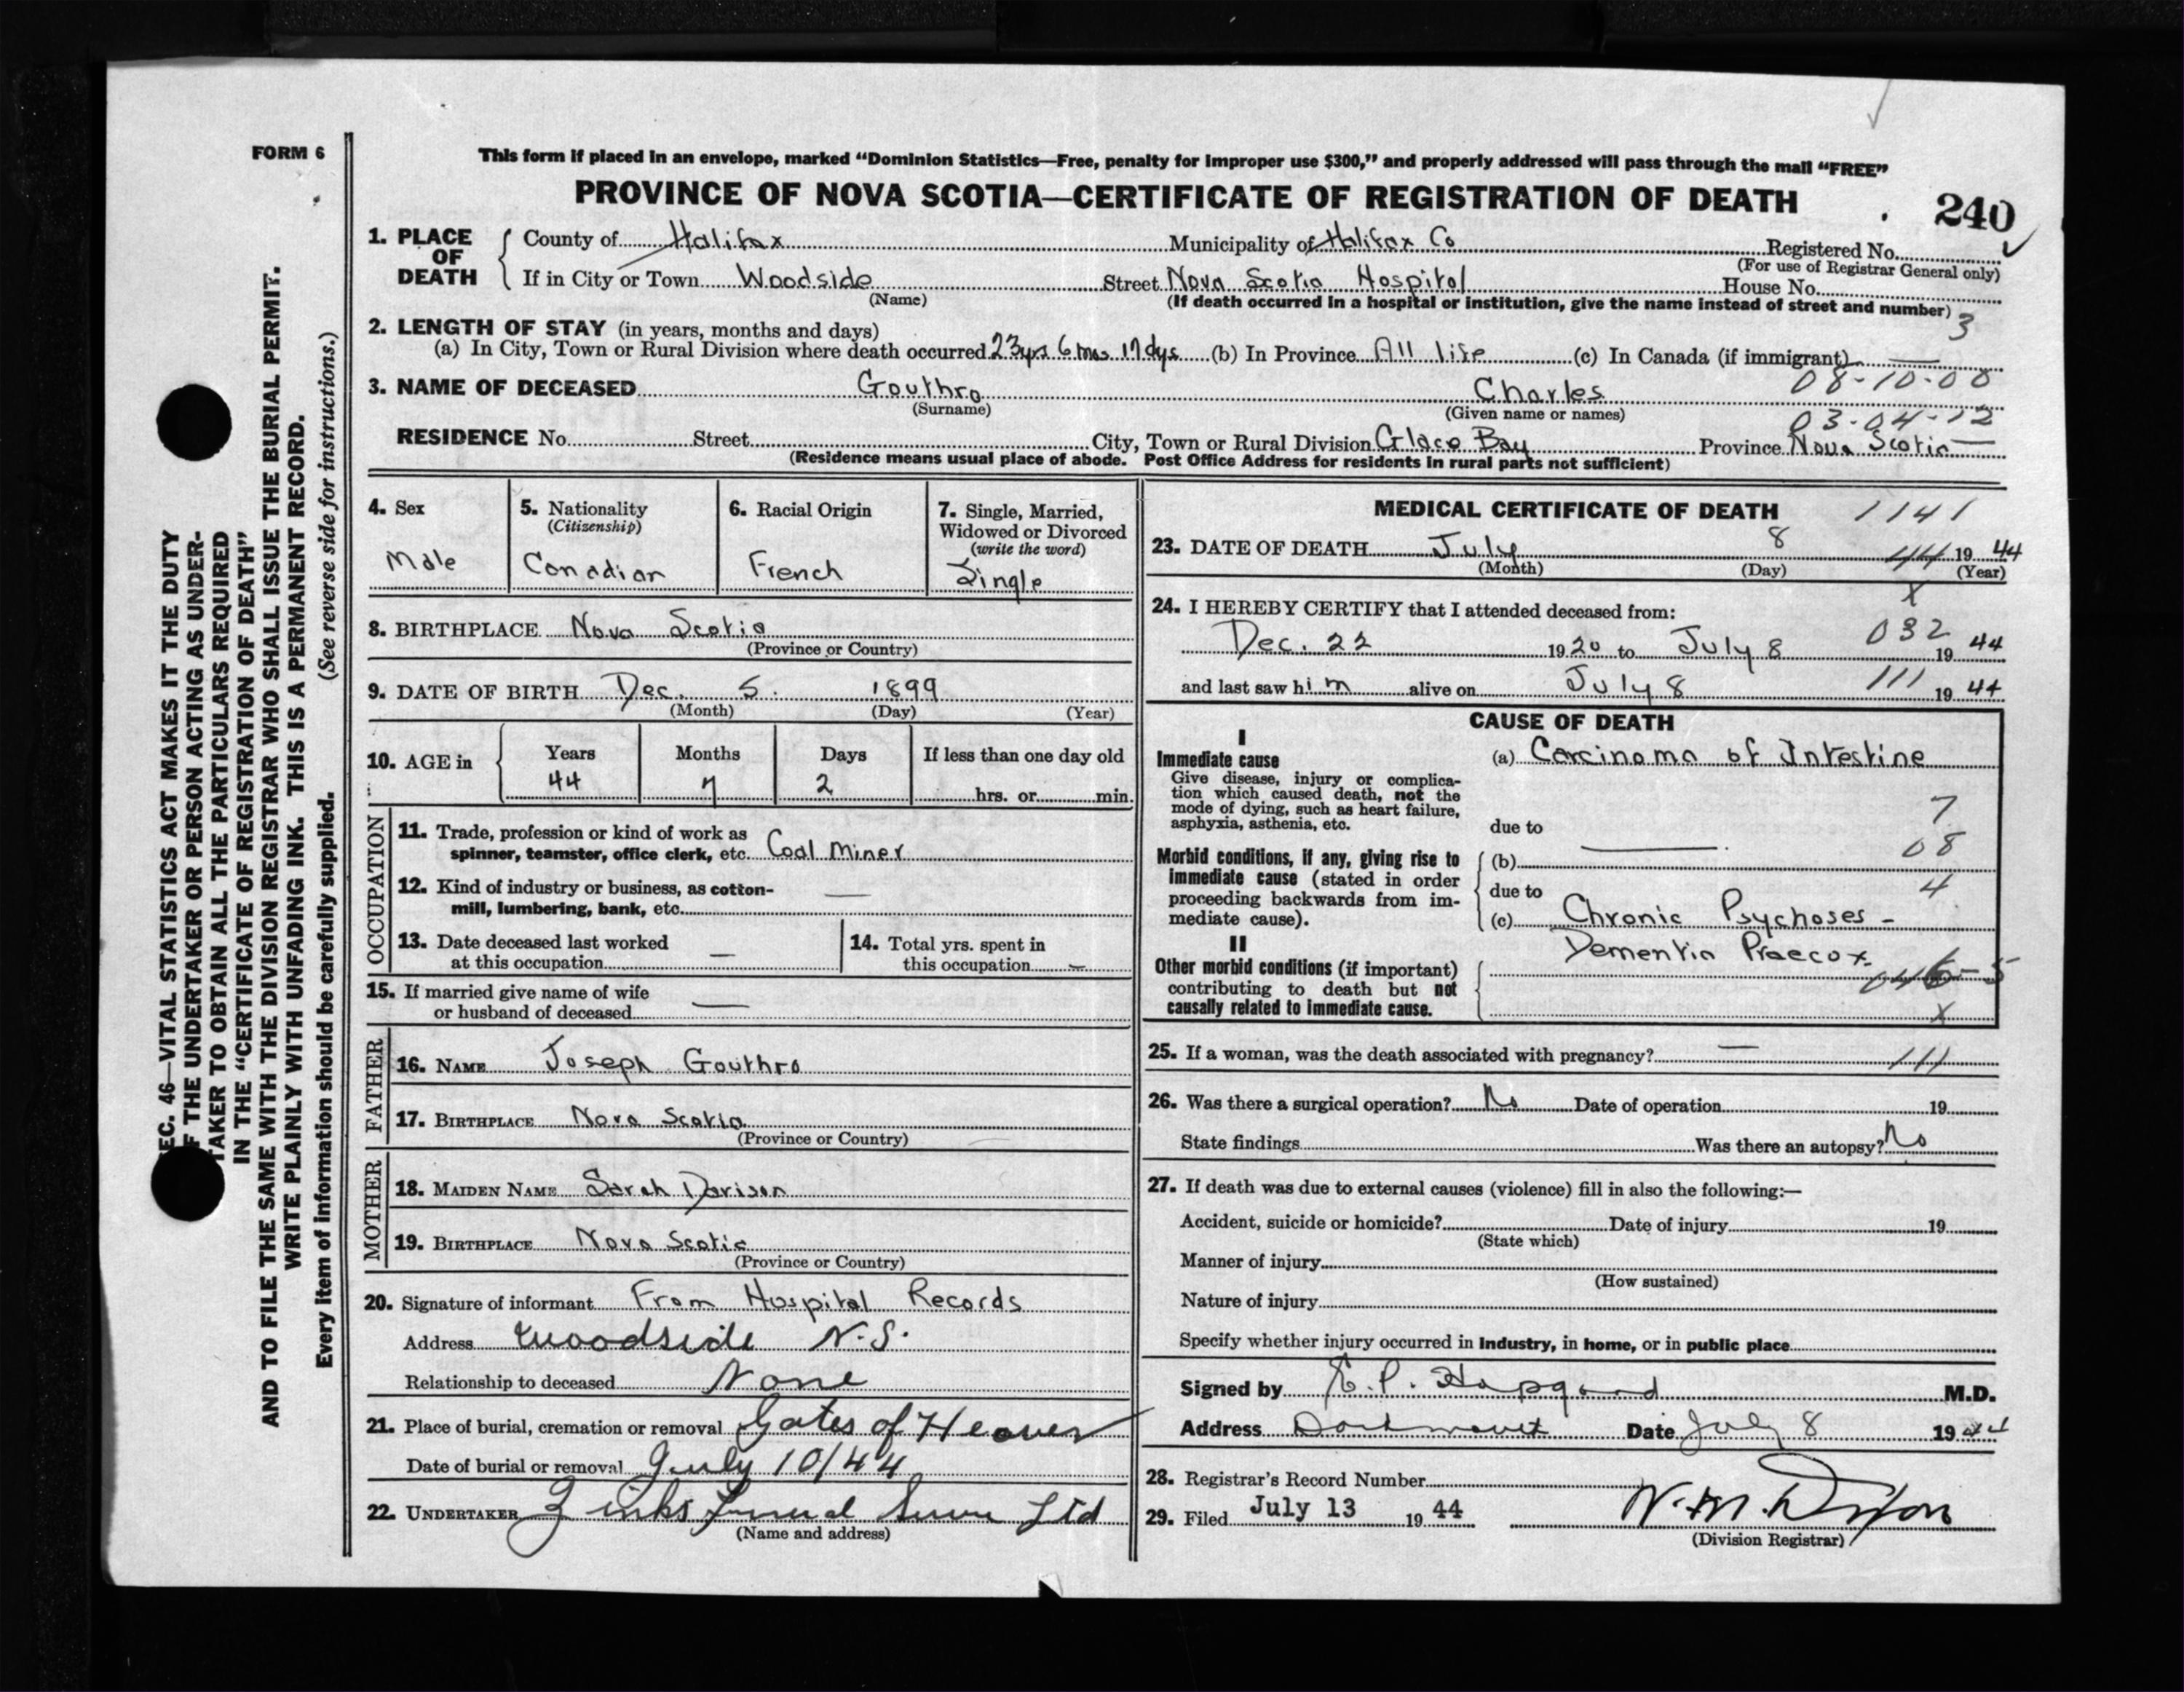 FORM 6
This form if placed in an envelope, marked “Dominion Statistics—Free, penalty for improper use $300,” and properly addressed will pass through the mail “FREE”
PROVINCE OF NOVA SCOTIA—CERTIFICATE OF REGISTRATION OF DEATH
240
1. PLACE OF DEATH
County of Halifax Municipality of Halifax Co Registered No.
(For use of Registrar General only)
If in City or Town Woodside Street Nova Scotia Hospital House No.
(Name) (If death occurred in a hospital or institution, give the name instead of street and number)
3
2. LENGTH OF STAY (in years, months and days)
(a) In City, Town or Rural Division where death occurred 23yrs 6 mos 17 dys (b) In Province All life (c) In Canada (if immigrant) —
08-10-00
3. NAME OF DECEASED Gouthro Charles
(Surname) (Given name or names)
03-04-12
RESIDENCE No. Street City, Town or Rural Division Glace Bay Province Nova Scotia
(Residence means usual place of abode. Post Office Address for residents in rural parts not sufficient)
4. Sex
Male
5. Nationality
(Citizenship)
Canadian
6. Racial Origin
French
7. Single, Married, Widowed or Divorced
(write the word)
Single
8. BIRTHPLACE Nova Scotia
(Province or Country)
9. DATE OF BIRTH Dec. 5. 1899
(Month) (Day) (Year)
10. AGE in Years Months Days If less than one day old
44 7 2 hrs. or min.
OCCUPATION
11. Trade, profession or kind of work as
spinner, teamster, office clerk, etc. Coal Miner
12. Kind of industry or business, as cotton- —
mill, lumbering, bank, etc.
13. Date deceased last worked
at this occupation —
14. Total yrs. spent in
this occupation —
15. If married give name of wife
or husband of deceased —
FATHER
16. NAME Joseph Gouthro
17. BIRTHPLACE Nova Scotia
(Province or Country)
MOTHER
18. MAIDEN NAME Sarah Davison
19. BIRTHPLACE Nova Scotia
(Province or Country)
20. Signature of informant From Hospital Records
Address Woodside N.S.
Relationship to deceased None
21. Place of burial, cremation or removal Gates of Heaven
Date of burial or removal July 10/44
22. UNDERTAKER Zinks Funeral Ltd
(Name and address)
MEDICAL CERTIFICATE OF DEATH 1141
23. DATE OF DEATH July 8 44 19 44
(Month) (Day) (Year)
X
24. I HEREBY CERTIFY that I attended deceased from:
032
Dec. 22 1920 to July 8 19 44
and last saw him alive on July 8 111 19 44
CAUSE OF DEATH
I
Immediate cause (a) Carcinoma of Intestine
Give disease, injury or complica-
tion which caused death, not the
mode of dying, such as heart failure,
asphyxia, asthenia, etc.
7
due to
08
Morbid conditions, if any, giving rise to (b)
immediate cause (stated in order
proceeding backwards from im-
mediate cause).
due to 4
(c) Chronic Psychoses -
Dementia Praecox
II
Other morbid conditions (if important)
contributing to death but not
causally related to immediate cause.
X
25. If a woman, was the death associated with pregnancy? — 111
26. Was there a surgical operation? No Date of operation 19
State findings Was there an autopsy? No
27. If death was due to external causes (violence) fill in also the following:—
Accident, suicide or homicide? Date of injury 19
(State which)
Manner of injury
(How sustained)
Nature of injury
Specify whether injury occurred in industry, in home, or in public place
Signed by E. P. Hapgood M.D.
Address Dartmouth Date July 8 1944
28. Registrar's Record Number
29. Filed July 13 19 44
(Division Registrar)
SEC. 46—VITAL STATISTICS ACT MAKES IT THE DUTY
OF THE UNDERTAKER OR PERSON ACTING AS UNDER-
TAKER TO OBTAIN ALL THE PARTICULARS REQUIRED
IN THE “CERTIFICATE OF REGISTRATION OF DEATH”
AND TO FILE THE SAME WITH THE DIVISION REGISTRAR WHO SHALL ISSUE THE BURIAL PERMIT.
WRITE PLAINLY WITH UNFADING INK. THIS IS A PERMANENT RECORD.
Every item of information should be carefully supplied. (See reverse side for instructions.)